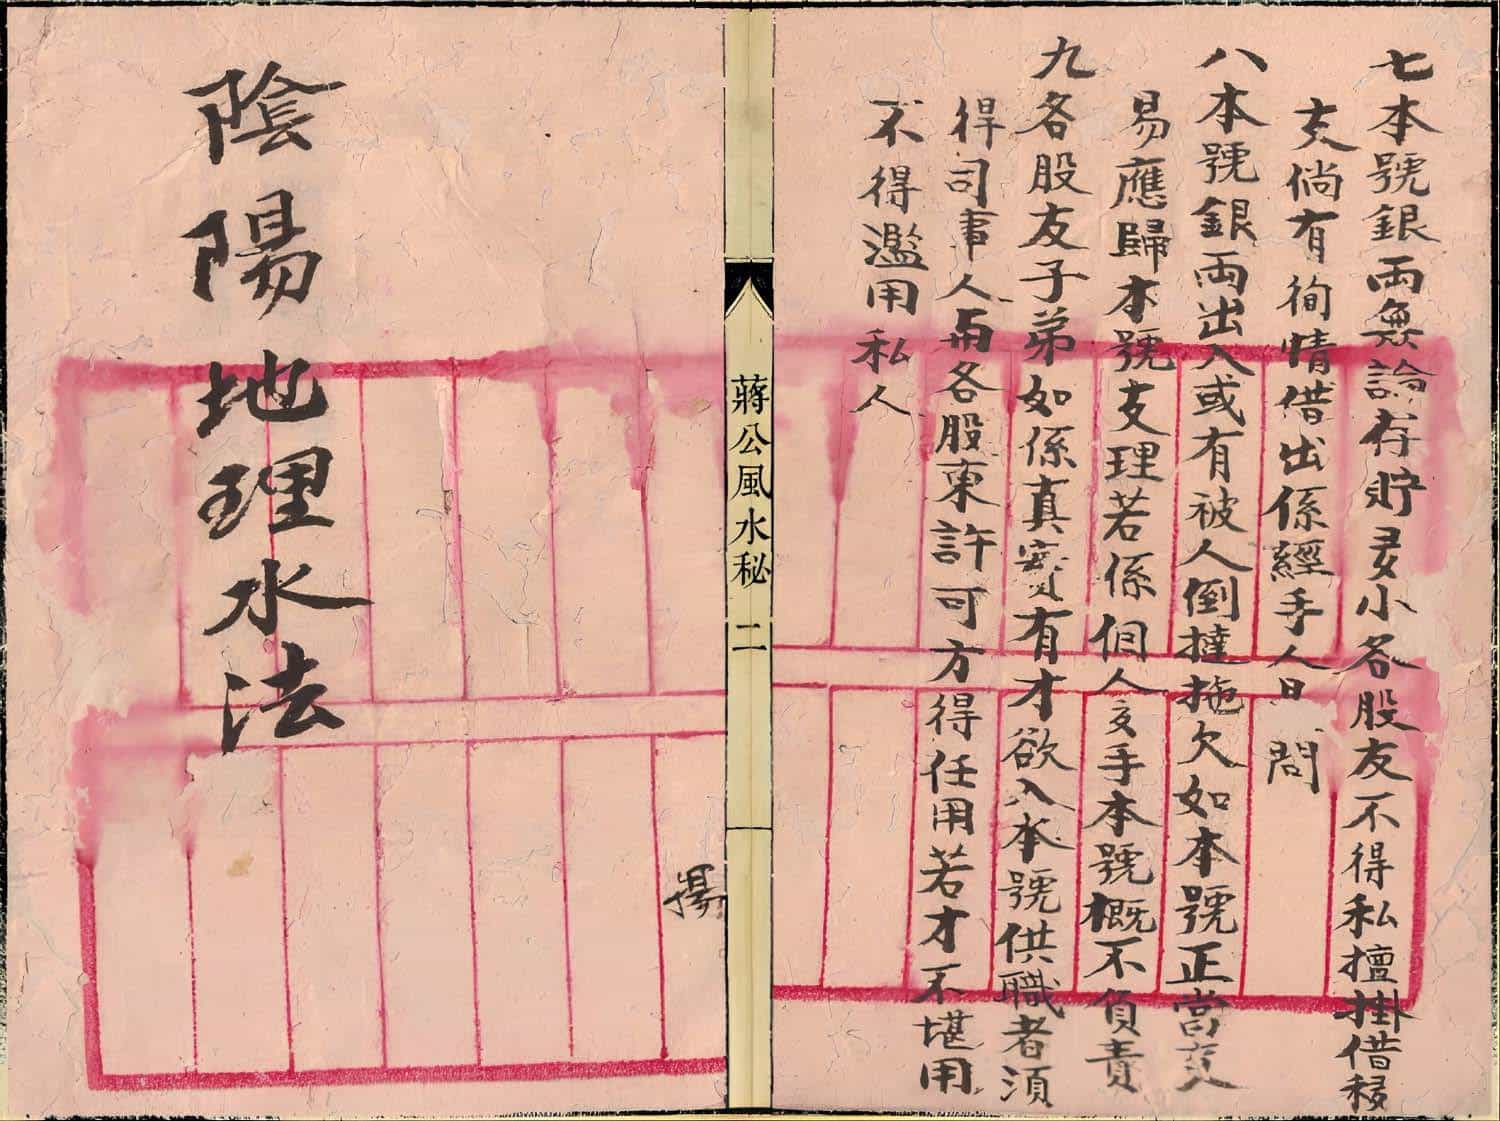 七本號銀両無論存貯多小各股友不得私擅掛借移
支倘有徇情借出係經手人日問
八本號銀両出入或有被人倒撻拖欠如本號正當交
易應歸本號支理若係個人交手本號概不負責
九各股友子弟如係真實有才欲入本號供職者須
得司事人而各股東許可方得任用若才不堪用
不得濫用私人
蔣公風水秘 二
揚
陰陽地理水法